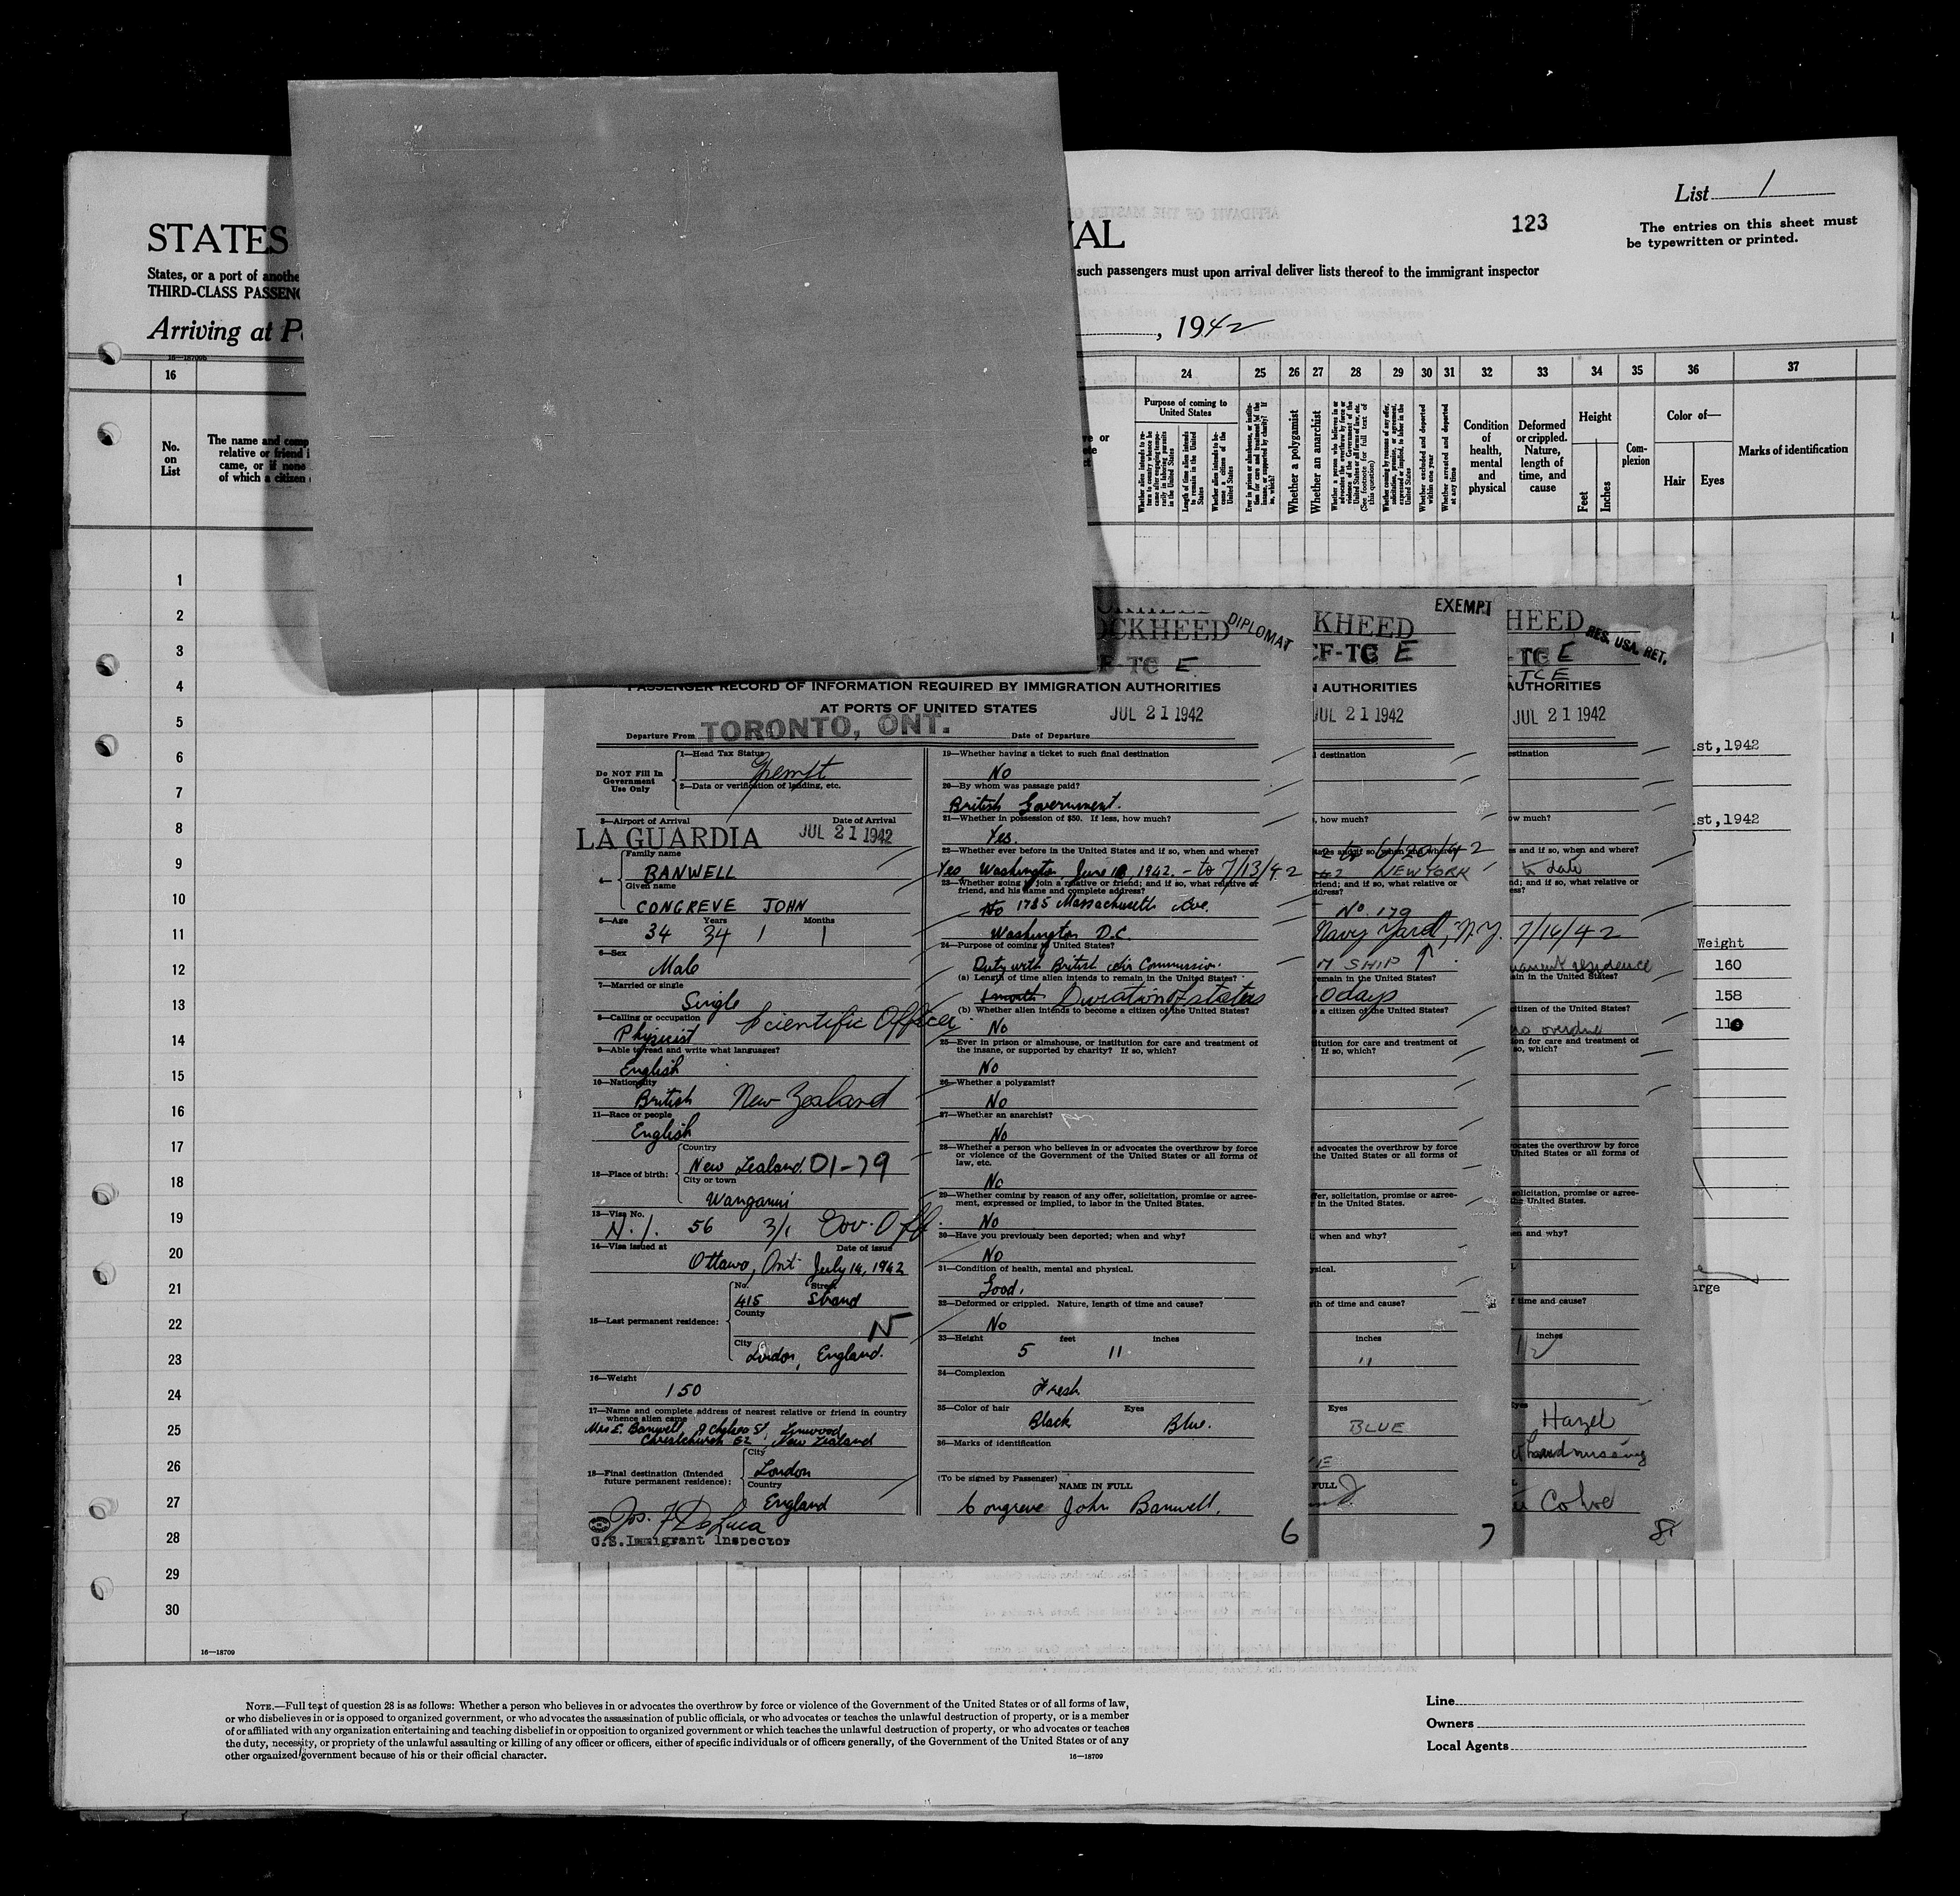 List 1
123
The entries on this sheet must
be typewritten or printed.
STATES
VAL
States, or a port of anothe
such passengers must upon arrival deliver lists thereof to the immigrant inspector
THIRD-CLASS PASSENG
Arriving at P
, 1942
16 24 25 26 27 28 29 30 31 32 33 34 35 36 37
No.
on
List
The name and comp
relative or friend i
came, or if none
of which a citizen
Purpose of coming to
United States
Whether a polygamist
Whether an anarchist
Condition
of
health,
mental
and
physical
Deformed
or crippled.
Nature,
length of
time, and
cause
Height
Feet
Inches
Com-
plexion
Color of—
Hair
Eyes
Marks of identification
1
2
3
4
5
6
7
8
9
10
11
12
13
14
15
16
17
18
19
20
21
22
23
24
25
26
27
28
29
30
16—18709
OCKHEED DIPLOMAT
F-TC E
PASSENGER RECORD OF INFORMATION REQUIRED BY IMMIGRATION AUTHORITIES
AT PORTS OF UNITED STATES
JUL 21 1942
Departure From TORONTO, ONT. Date of Departure
Do NOT Fill In
Government
Use Only
1—Head Tax Status
Exempt
2—Data or verification of landing, etc.
3—Airport of Arrival Date of Arrival
LA GUARDIA JUL 21 1942
4— Family name
BANWELL
Given name
CONGREVE JOHN
5—Age Years Months
34 34 1 1
6—Sex
Male
7—Married or single
Single
8—Calling or occupation
Physicist Scientific Officer
9—Able to read and write what languages?
English
10—Nationality
British New Zealand
11—Race or people
English
12—Place of birth:
Country
New Zealand 01-79
City or town
Wanganui
13—Visa No.
56 3/1 Gov. Off.
14—Visa issued at Date of issue
Ottawa, Ont July 14, 1942
15—Last permanent residence:
No. Street
415 Strand
County
N
City
London, England.
16—Weight
150
17—Name and complete address of nearest relative or friend in country
whence alien came
Mrs E. Banwell, 9 Chelsea St, Linwood
Christchurch E2, New Zealand
18—Final destination (Intended
future permanent residence):
City
London
Country
England
Jos. F De Luca
U.S. Immigrant Inspector
19—Whether having a ticket to such final destination
No
20—By whom was passage paid?
British Government.
21—Whether in possession of $50. If less, how much?
Yes.
22—Whether ever before in the United States and if so, when and where?
Yes Washington, June 1942. - to 7/13/42
23—Whether going to join a relative or friend; and if so, what relative or
friend, and his name and complete address?
No 1785 Massachusetts Ave.
Washington D.C.
24—Purpose of coming to United States?
Duty with British Air Commission.
(a) Length of time alien intends to remain in the United States?
1 month Duration of status
(b) Whether alien intends to become a citizen of the United States?
No
25—Ever in prison or almshouse, or institution for care and treatment of
the insane, or supported by charity? If so, which?
No
26—Whether a polygamist?
No
27—Whether an anarchist?
No
28—Whether a person who believes in or advocates the overthrow by force
or violence of the Government of the United States or all forms of
law, etc.
No
29—Whether coming by reason of any offer, solicitation, promise or agree-
ment, expressed or implied, to labor in the United States.
No
30—Have you previously been deported; when and why?
No
31—Condition of health, mental and physical.
Good.
32—Deformed or crippled. Nature, length of time and cause?
No
33—Height feet inches
5 11
34—Complexion
Fresh
35—Color of hair Eyes
Black Blue.
36—Marks of identification
(To be signed by Passenger)
NAME IN FULL
Congreve John Banwell.
6
EXEMPT
KHEED
CF-TC E
N AUTHORITIES
JUL 21 1942
l destination
, how much?
6/20/42
NEW YORK
friend; and if so, what relative or
dress?
No. 179
Navy Yard, N.Y.
SHIP
remain in the United States?
0 days
e a citizen of the United States?
itution for care and treatment of
If so, which?
advocates the overthrow by force
the United States or all forms of
fer, solicitation, promise or agree-
r in the United States.
when and why?
ysical.
th of time and cause?
inches
11
Eyes
BLUE
FULL
7
HEED RES. USA. RET.
-TC E
-TCE
AUTHORITIES
JUL 21 1942
estination
ow much?
s and if so, when and where?
to date
nd; and if so, what relative or
ess?
7/16/42
manent residence
ain in the United States?
citizen of the United States?
overdue
ion for care and treatment of
so, which?
ocates the overthrow by force
United States or all forms of
solicitation, promise or agree-
the United States.
en and why?
f time and cause?
inches
1/2
Eyes
Hazel
hand missing
Cohoe
8
1st, 1942
1st, 1942
Weight
160
158
110
arge
NOTE.—Full text of question 28 is as follows: Whether a person who believes in or advocates the overthrow by force or violence of the Government of the United States or of all forms of law,
or who disbelieves in or is opposed to organized government, or who advocates the assassination of public officials, or who advocates or teaches the unlawful destruction of property, or is a member
of or affiliated with any organization entertaining and teaching disbelief in or opposition to organized government or which teaches the unlawful destruction of property, or who advocates or teaches
the duty, necessity, or propriety of the unlawful assaulting or killing of any officer or officers, either of specific individuals or of officers generally, of the Government of the United States or of any
other organized government because of his or their official character.
16—18709
Line
Owners
Local Agents